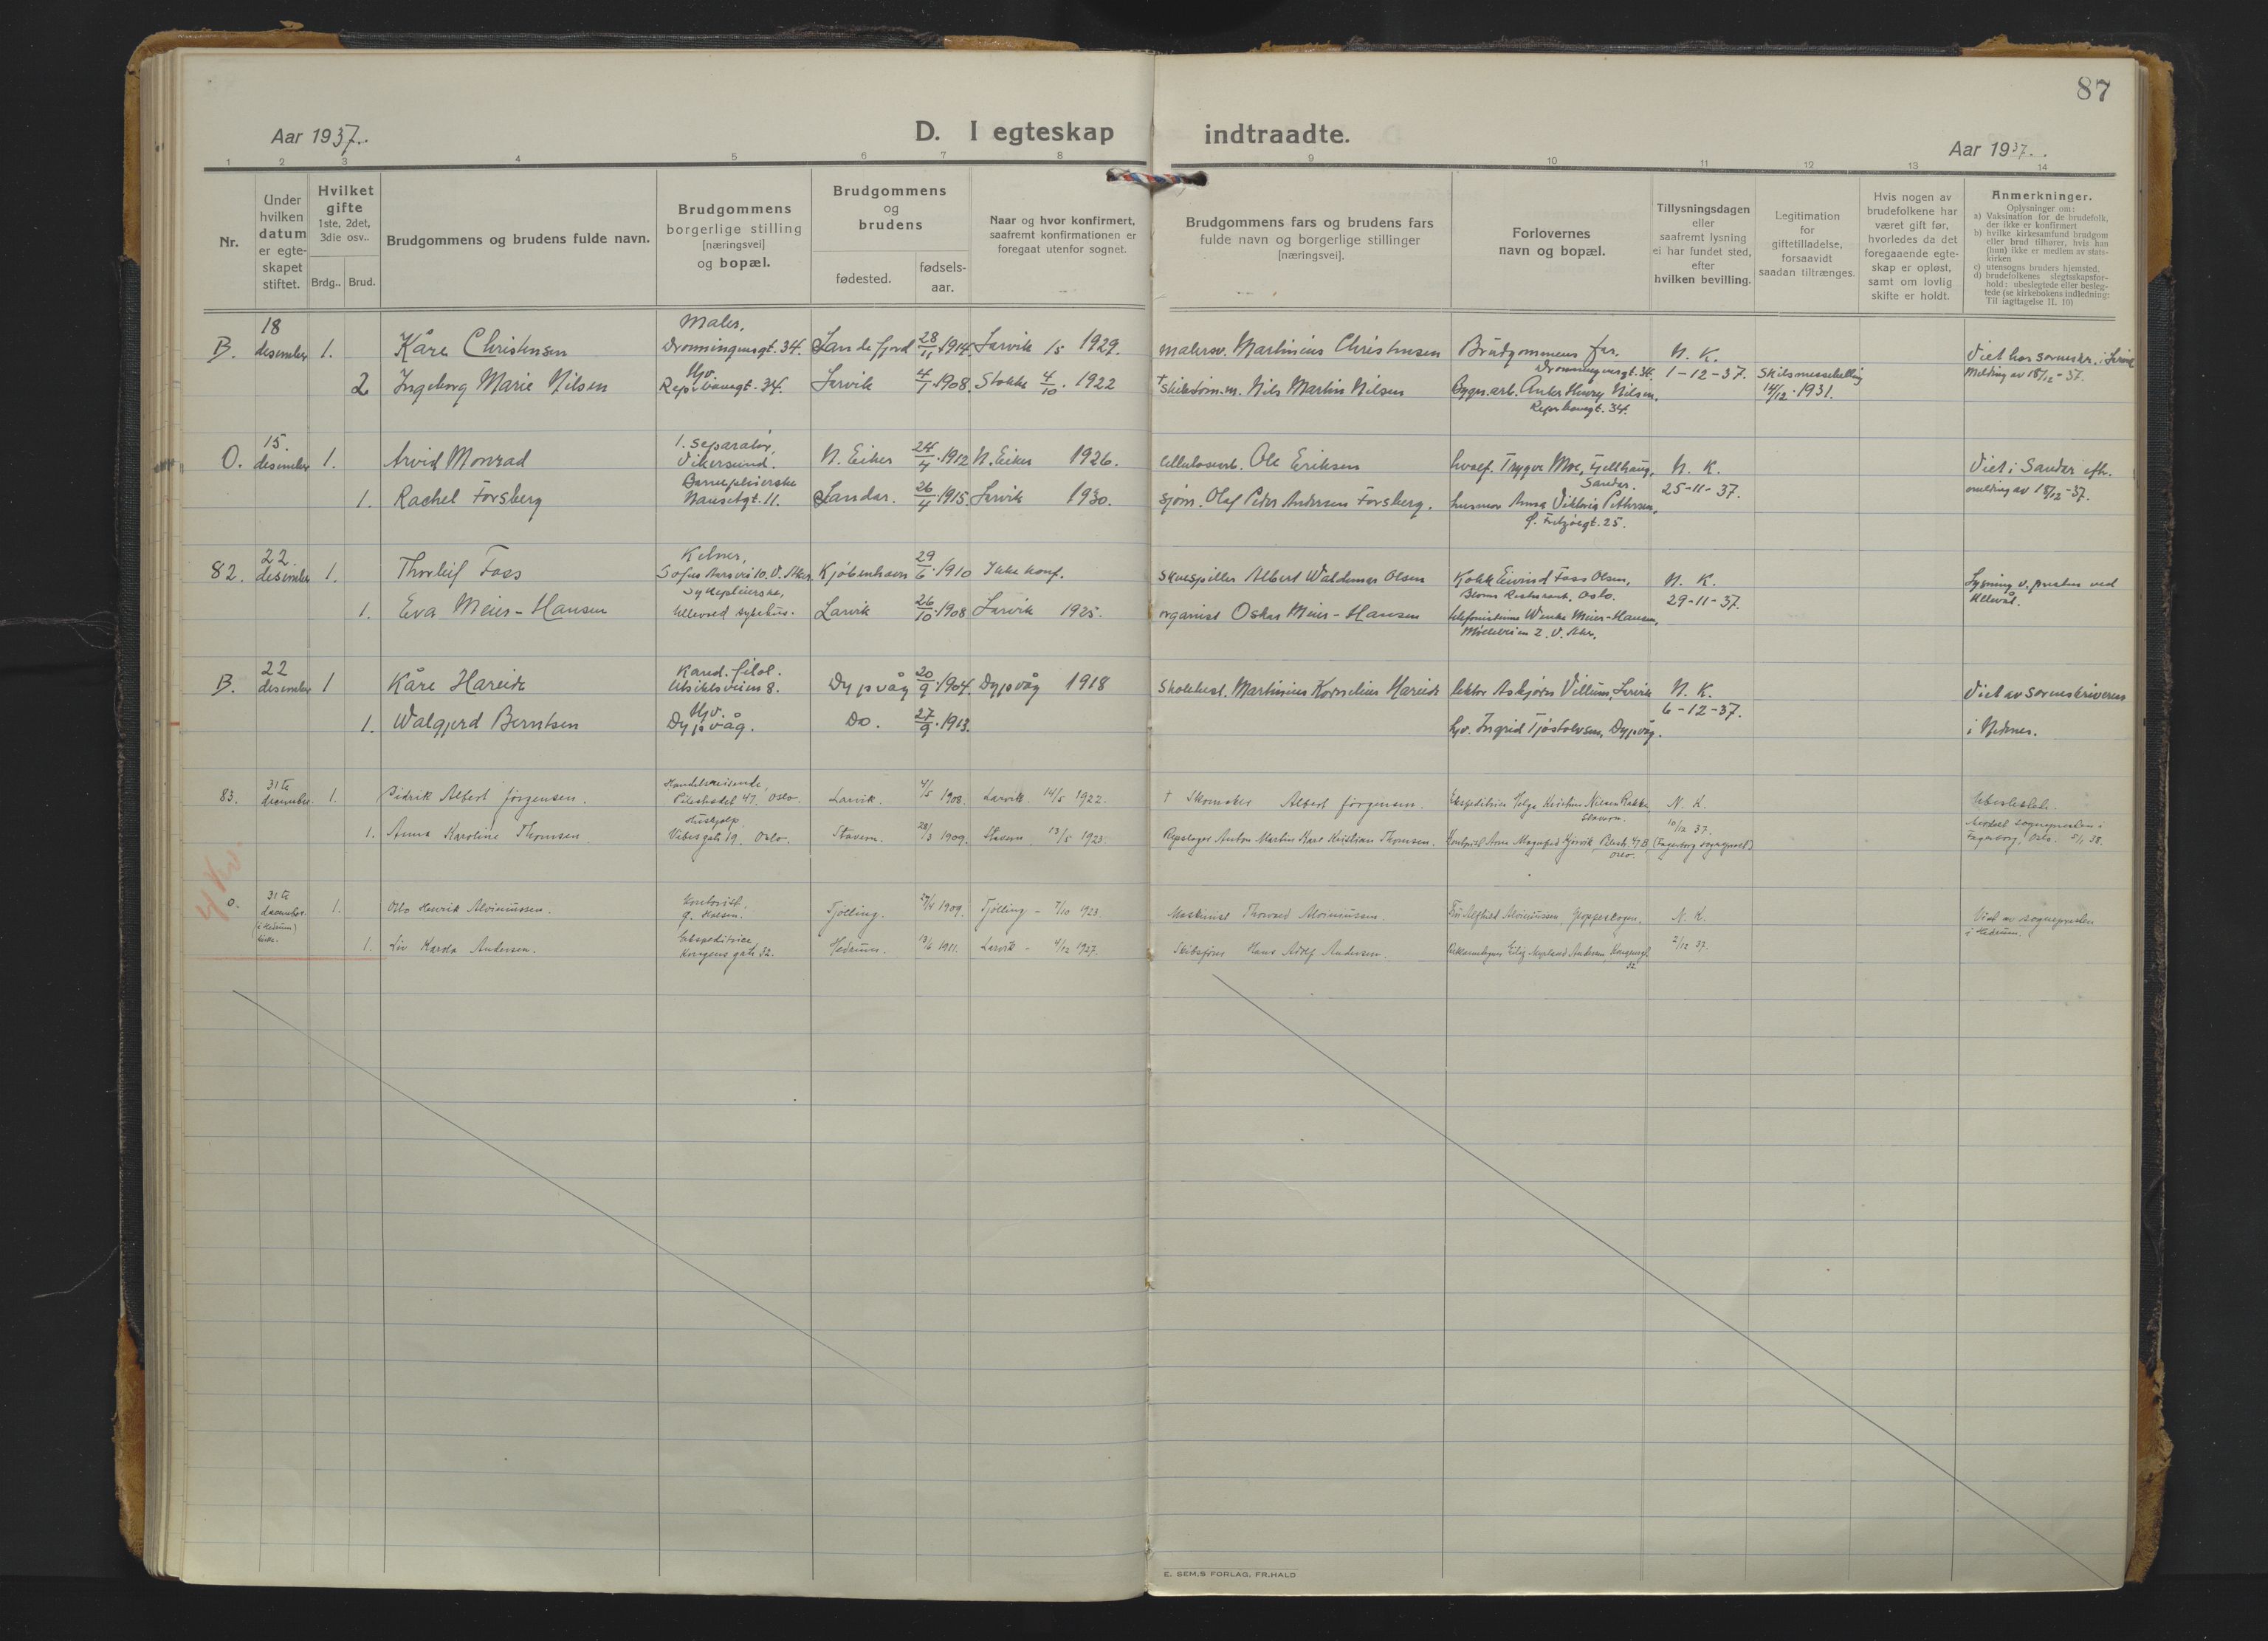 87
Aar 1937.
D. I egteskap indtraadte.
Aar 1937.
1 2 3 4 5 6 7 8 9 10 11 12 13 14
Nr.
Under
hvilken
datum
er egte-
skapet
stiftet.
Hvilket
gifte
1ste, 2det,
3die osv..
Brdg.. Brud.
Brudgommens og brudens fulde navn.
Brudgommens
borgerlige stilling
[næringsvei]
og bopæl.
Brudgommens
og
brudens
fødested.
fødsels-
aar.
Naar og hvor konfirmert,
saafremt konfirmationen er
foregaat utenfor sognet.
Brudgommens fars og brudens fars
fulde navn og borgerlige stillinger
[næringsvei].
Forlovernes
navn og bopæl.
Tillysningsdagen
eller
saafremt lysning
ei har fundet sted,
efter
hvilken bevilling.
Legitimation
for
giftetilladelse,
forsaavidt
saadan tiltrænges.
Hvis nogen av
brudefolkene har
været gift før,
hvorledes da det
foregaaende egte-
skap er opløst,
samt om lovlig
skifte er holdt.
Anmerkninger.
Oplysninger om:
a) Vaksination for de brudefolk,
der ikke er konfirmert
b) hvilke kirkesamfund brudgom
eller brud tilhører, hvis han
(hun) ikke er medlem av stats-
kirken
c) utensogns bruders hjemsted.
d) brudefolkenes slegtsskapsfor-
hold: ubeslegtede eller besleg-
tede (se kirkebokens indledning:
Til iagttagelse II. 10)
B. 18 desember 1. Kåre Christensen Maler, Dronningensgt. 34. Sandefjord 28/11 1914. Larvik 1929. malersv. Martinius Christensen Brudgommens far. Dronningensgt. 34. N. K. 1-12-37. Viet hos sorenskr. i Larvik
2 Ingeborg Marie Nilsen Hjv. 34. Larvik 4/1 1908. Stokke 4/10. 1922 † Nils Martin Nilsen Bygn.arb. Anker Henry Nilsen, 34. Skilsmissebevilling 14/12. 1931. Melding av 18/12-37.
O. 15. desember 1. Arvid Monrad 1. separatør, Vikersund. N. Eiker 24/4. 1912 N. Eiker 1926. Ole Eriksen Trygve Moe, Fjellhaug, Sandar. N. K. 25-11-37. Viet i Sandar efh. melding av 18/12-37.
1. Rachel Forsberg Barnepleierske Nansetgt. 11. Sandar. 26/4. 1915. Larvik 1930. sjøm. Olaf Peder Andersen Forsberg. husmor Anna Viktoria Pettersen, Ø. Fritzøegt. 25.
82. 22. desember 1. Thorleif Foss Kelner, Sofus Aarsvei 10. V. Aker. Kjøbenhavn 29/6. 1910 Ikke konf. Skuespiller Albert Waldemar Olsen Kokk Eivind Foss Olsen, Bloms Restaurant, Oslo. N. K. 29-11-37. Lysning v. presten ved Ullevål.
1. Eva Meier-Hansen Sykepleierske, Ullevål sykehus. Larvik 26/10. 1908 Larvik 1925. organist Oskar Meier-Hansen telefonistinne Wenke Meier-Hansen, Mølleveien 2. V. Aker.
B. 22 desember 1 Kåre Hareide Kand. filol. Utsiktsveien 8. Dypvåg 20/9. 1904. Dypvåg 1918 Skolebest. Martinius Kornelius Hareide lektor Asbjørn Villum, Larvik N. K. 6-12-37. Viet av sorenskriveren
1. Walgjerd Berntsen Hjv. Dypvåg. Do. 27/9. 1913. hjv. Ingrid Tjøstolvsen, Dypvåg. i Nedenes.
83. 31te december. 1. Didrik Albert Jørgensen. Handelsreisende, Pilestredet 47, Oslo. Larvik. 4/5 1908. Larvik. 14/5 1922. † Skomaker Albert Jørgensen. Ekspeditrice Helga Kristine Nilsen Rakke, Stavern. N. K. 10/12 37. Ubeslektet.
1. Anna Karoline Thomsen Hushjelp. Vibesgate 19. Oslo. Stavern. 28/3 1909. Stavern 13/5 1923. Repslager Anton Martin Kristian Thomsen. Arne Magnfred Kjørvik, Pilestr. 47 B, Oslo. (Fagerborg sogneprest) Meddelt sognepresten i Fagerborg, Oslo. 5/1 38.
4 kv.
O. 31te december. (i Hedrum) kirke. 1. Otto Henrik Alvinussen. Kontorist, Tjølling. 27/4 1909. Tjølling - 7/10 1923. Maskinist Thorvald Alvinussen. Fru Alfhild Alvinussen N. K. 2/12 37. Viet av sognepresten i Hedrum.
1. Liv Karola Andersen. Ekspeditrice, Kongens gate 32. Hedrum. 13/6 1911. Larvik - 4/12 1927. Skibsfører Hans Adolf Andersen. Andersen, Kongensgt. 32.
E. SEM,S FORLAG, FR.HALD